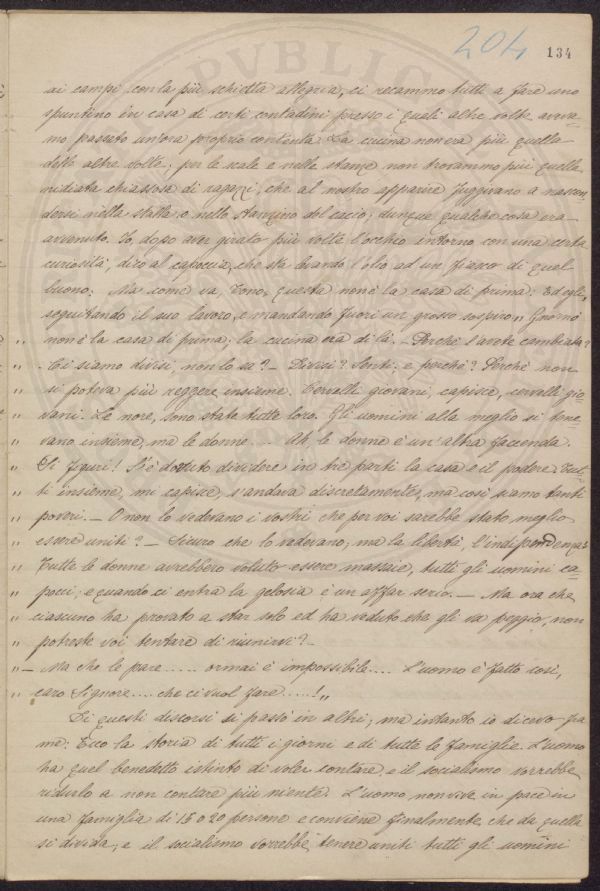 204
134
ai campi con la più schietta allegria, ci recammo tutti a fare uno
spuntino in casa di certi contadini presso i quali altre volte aveva-
mo passato un'ora proprio contenta. La cucina non era più quella
delle altre volte; per le scale e nelle stanze non trovammo più quella
nidiata chiassosa di ragazzi, che al nostro apparire fuggivano a nascon-
dersi nella stalla o nello stanzino del cacio; dunque qualche cosa era
avvenuto. Io, dopo aver girato più volte l'occhio intorno con una certa
curiosità, dico al capoccia, che sta levando l'olio ad un fiasco di quel
buono: Ma come va, Tono, questa non è la casa di prima: Ed egli,
seguitando il suo lavoro, e mandando fuori un grosso sospiro „ Gnornò
„ non è la casa di prima; la cucina era di là. – Perchè l'avete cambiata?
„ . Ci siamo divisi, non lo sa? – Divisi? Senti: e perchè? Perchè non
„ si poteva più reggere insieme. Cervelli giovani, capisce, cervelli gio-
„ vani. Le nore, sono state tutte loro. Gli uomini alla meglio si tene-
„ vano insieme, ma le donne.... Uh le donne è un'altra faccenda.
„ Si figuri! S'è dovuto dividere in tre parti la casa e il podere. Tut-
„ ti insieme, mi capisce, s'andava discretamente, ma così siamo tanti
„ poveri. – O non lo vedevano i vostri che per voi sarebbe stato meglio
„ essere uniti? – Sicuro che lo vedevano; ma la libertà, l'indipendenza!
„ Tutte le donne avrebbero voluto essere massaie, tutti gli uomini ca-
„ pocci; e quando ci entra la gelosia è un affar serio. – Ma ora che
„ ciascuno ha provato a star solo ed ha veduto che gli va peggio, non
„ potreste voi tentare di riunirvi? –
„ – Ma che le pare ..... ormai è impossibile.... L'uomo è fatto così,
„ caro Signore.... che ci vuol fare.....!„
Di questi discorsi si passò in altri; ma intanto io dicevo fra
me: Ecco la storia di tutti i giorni e di tutte le famiglie. L'uomo
ha quel benedetto istinto di voler contare, e il socialismo vorrebbe
ridurlo a non contare più niente. L'uomo non vive in pace in
una famiglia di 15 o 20 persone e conviene finalmente, che da quella
si divida, e il socialismo vorrebbe tenere uniti tutti gli uomini